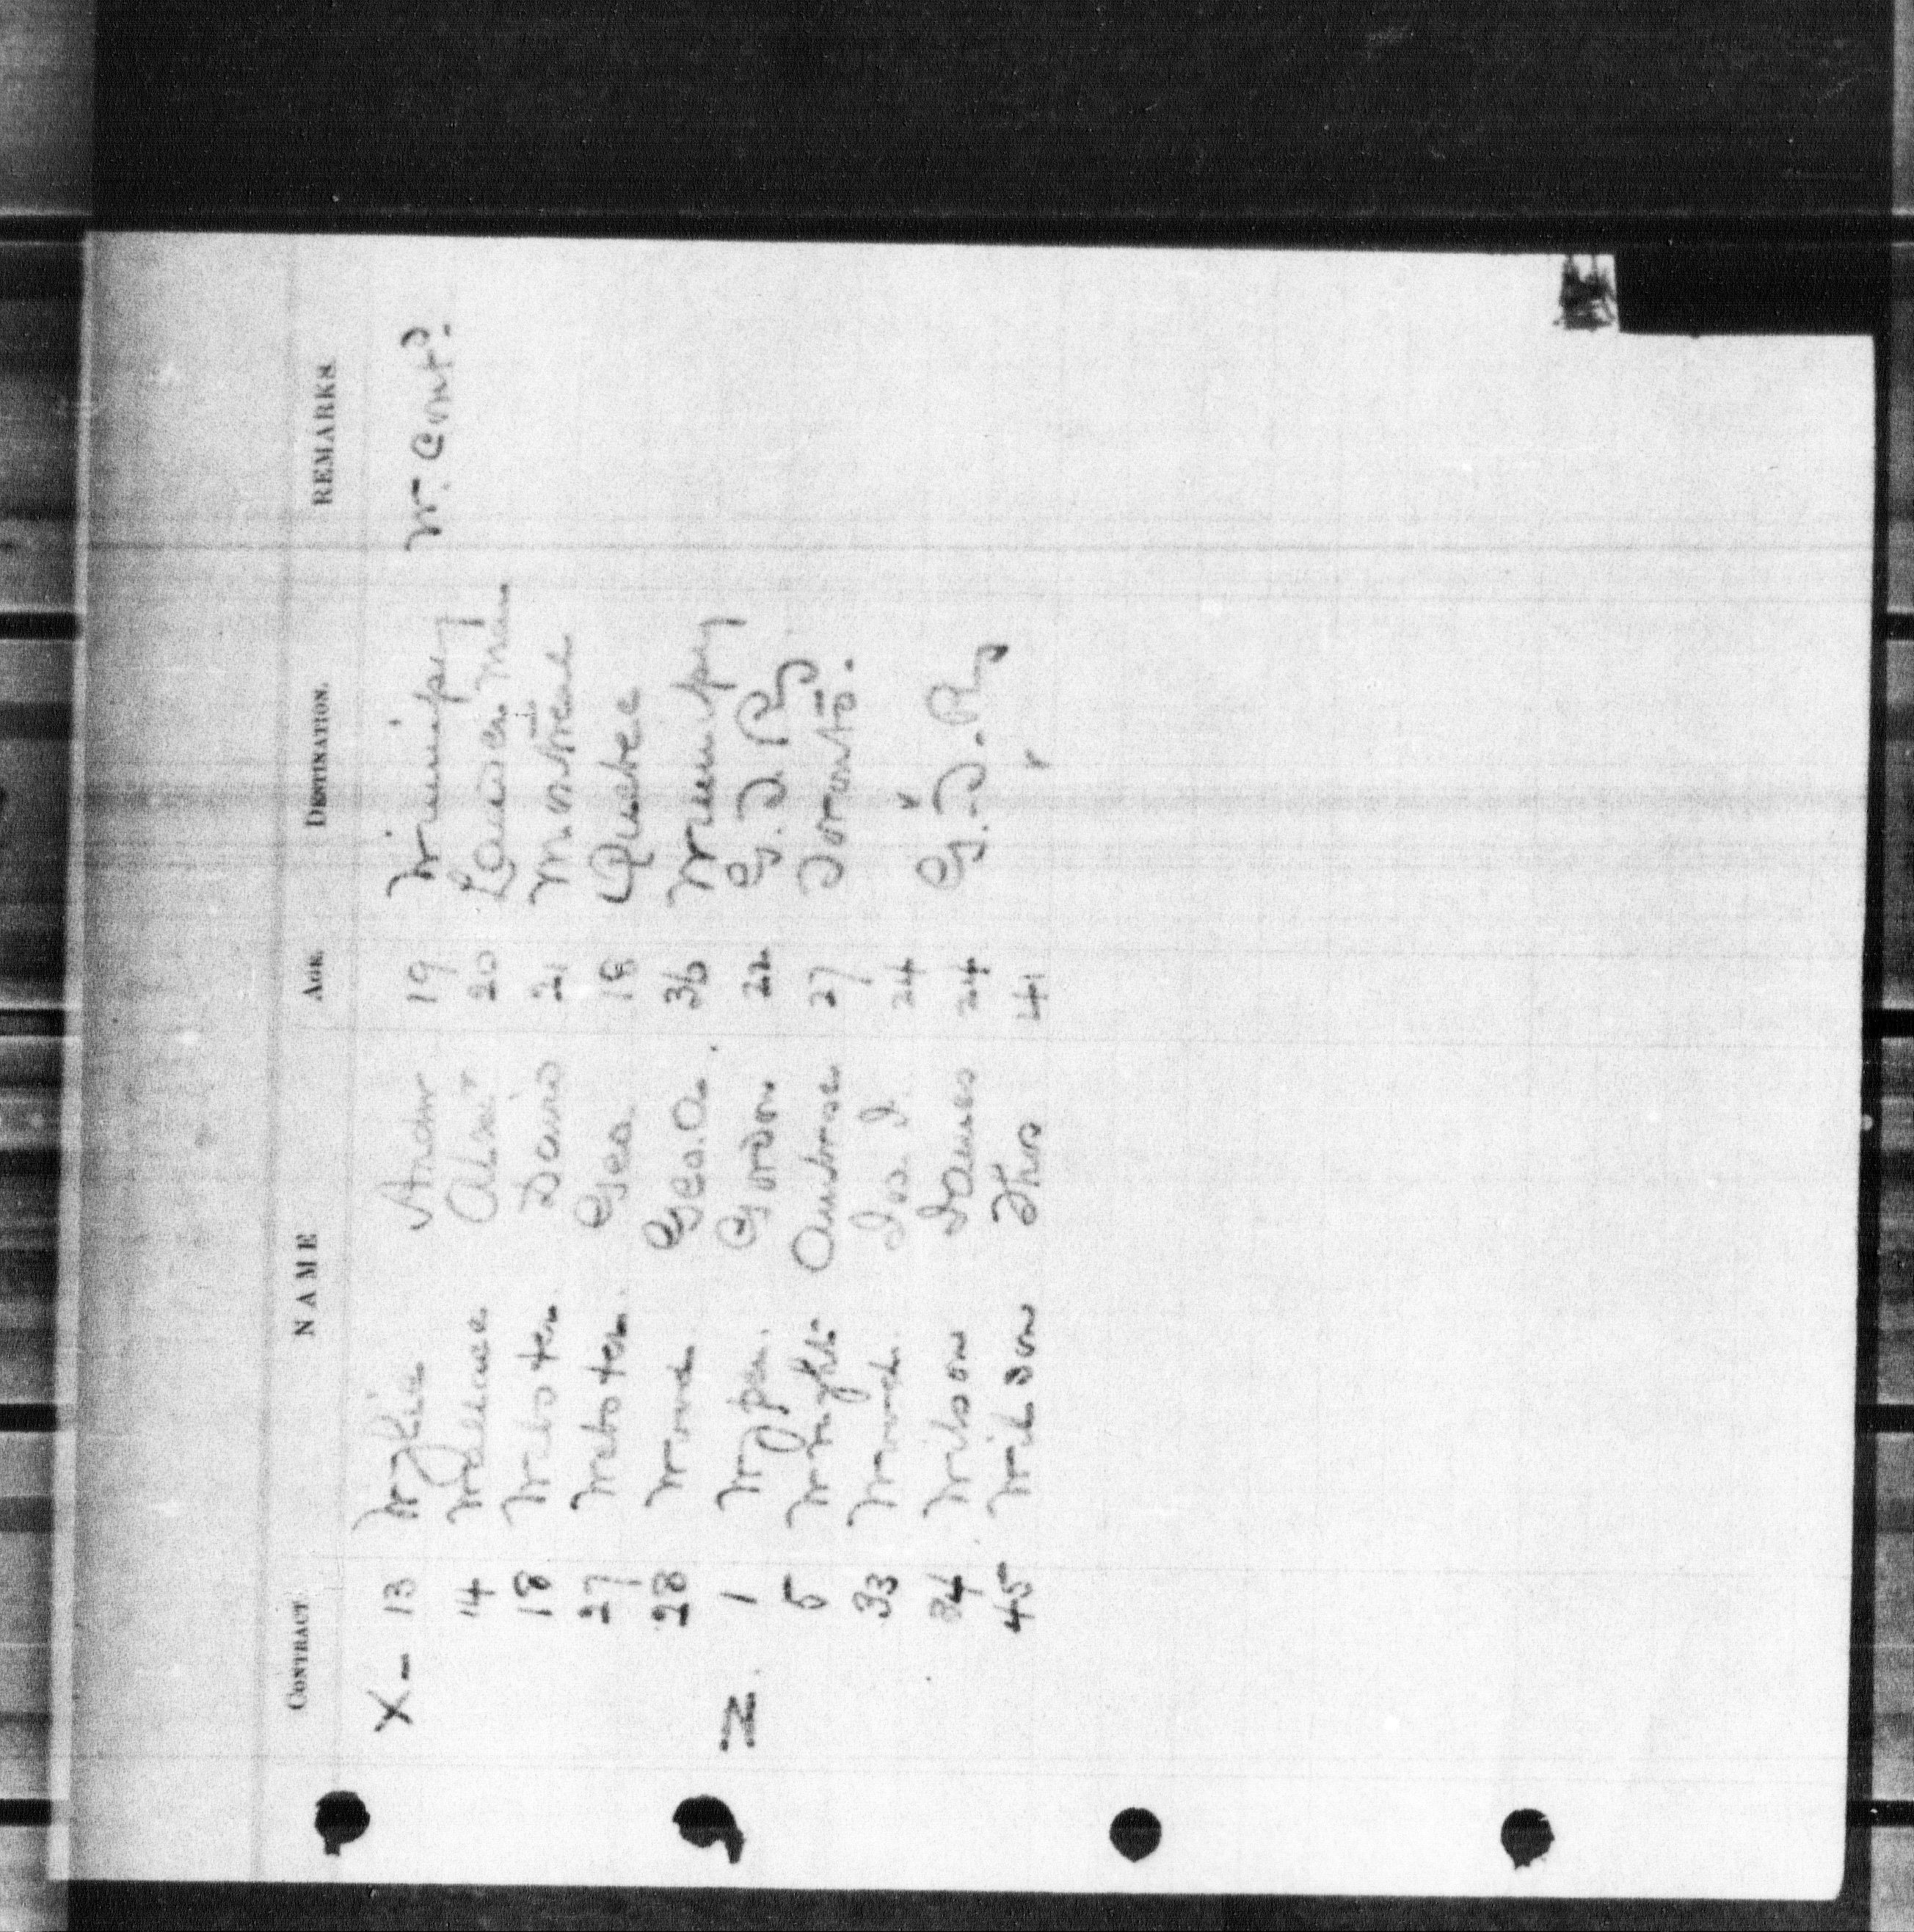 CONTRACT NAME AGE. DESTINATION. REMARKS
W. Contd.
X - 13 Wyllie Andw 19 Winnipeg
14 Wallace Albt 20 
18 Webster David 21 Montreal
27 Webster Geo. 18 Quebec
28 Wood Geo. A. 36 Winnipeg
Z. 1 Gordon 22 G. T. Ry
5 Wright Ambrose 27 Toronto.
33 Wood Jos. J. 24 "
34 Wilson James 24 G. T. Ry
45 Wilson Thos 41 "